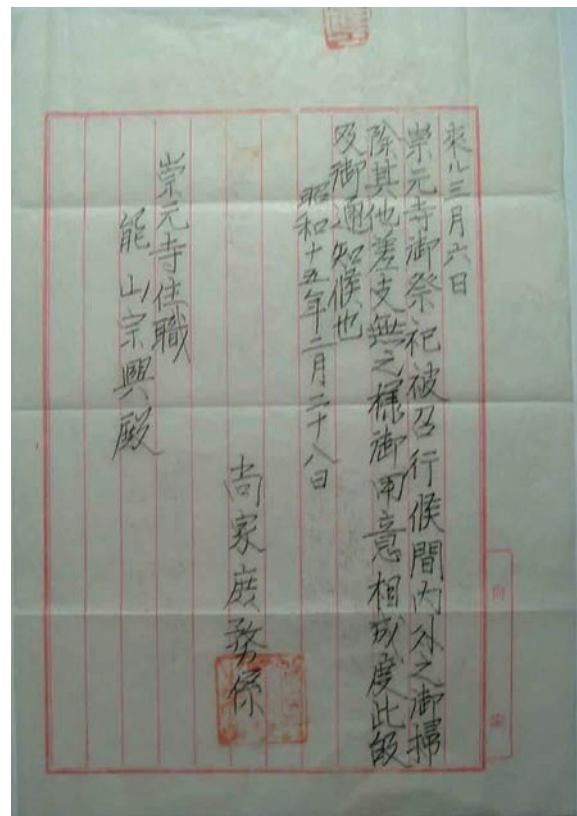 来ル三月六日
崇元寺御祭祀被召行候間内外之御掃
除其他差支無之様御用意相成度此段
及御通知候也
昭和十五年二月二十八日
尚家庶務係
崇元寺住職
能山宗興殿